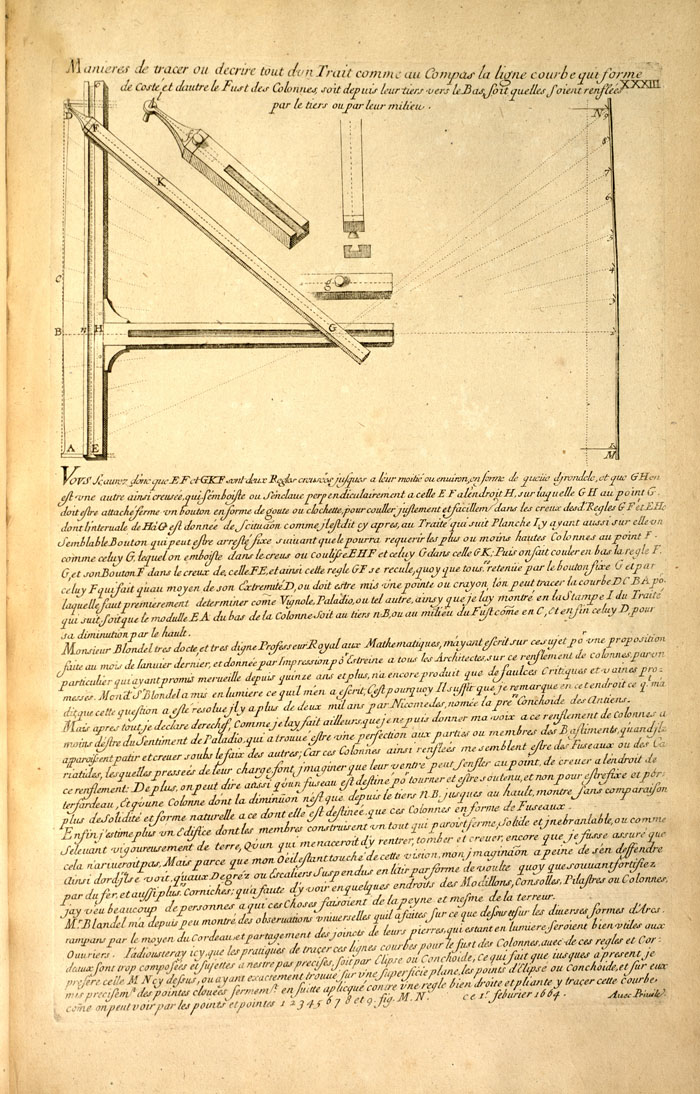 Manieres de tracer ou decrire tout d'un Trait comme au Compas la ligne courbe qui forme
de costé et d'autre le Fust des Colonnes, soit depuis leur tiers vers le Bas, soit quelles soient renflées
XXXIII
par le tiers ou par leur milieu.
D
F
N 9
8
7
6
K
5
4
C
g
3
B n H
G
2
A E
M
VOUS Scaurez donc que E F et G K F sont deux Regles creusées jusques a leur moitié ou environ, en forme de queüe d'jrondele, et que G H en
est vne autre ainsi creusée, qui s'emboiste ou s'enclaue perpendiculairement a celle E F a l'endroit H, sur laquelle G H au point G.
doit estre attaché ferme vn bouton en forme de goute ou clochette, pour couller justement et facillem.t dans les creux desd. Regles G F et E H.
dont l'interuale de H a G est donnée de Scituãon comme j'lest dit cy apres, au Traité qui suit Planche I, y ayant aussi sur elle vn
Semblable Bouton qui peut estre arresté fixe suiuant que le pourra requerir les plus ou moins hautes Colonnes au point F.
comme celuy G. lequel on emboiste dans le creus ou coulisse E H F et celuy G dans celle G K; Puis on fait couler en bas la regle F.
G, et son Bouton F dans le creux de, celle F E, et ainsi cette regle G F se recule, quoy que tous.rs retenüe par le bouton fixe G et par
celuy F qui fait qu'au moyen de son Extremité D, ou doit estre mis vne pointe ou crayon, l'on peut tracer la courbe D C B A. po.r
laquelle faut premierement determiner come Vignole, Paladio, ou tel autre, ainsy que je lay montré en la Stampe I du Traité
qui suit, soit que le modulle E A du bas de la Colonne soit au tiers n B, ou au milieu du Fust come en C, et en fin celuy D, pour
sa diminution par le hault.
Monsieur Blondel tres docte, et tres digne Professeur Royal aux Mathematiques, m'ayant escrit sur ce sujet po.r vne proposition
faite au mois de Ianuier dernier, et donnée par Impression po.r Estreine a tous les Architectes, sur ce renflement de colonnes, par vn
particulier qui ayant promis merueille depuis quinze ans et plus, n'a encore produit que de faulces Critiques et vaines pro=
messes. Mond.t S.r Blondel a mis en lumiere ce quil m'en a escrit, C'est pourquoy Il suffit que je remarque en cet endroit ce q.l m'a
dit, que cette question a esté resolüe jl y a plus de deux mil ans par Nicomedes, nomée la pre.re Conchoide des Antiens.
Mais apres tout, je declare derechef, Comme je lay fait ailleurs, que je ne puis donner ma voix a ce renflement de Colonnes a
moins d'estre du Sentiment de Paladio, qui a trouué estre vne perfection aux parties ou membres des Bastiments, quand jls
apparoissent patir et creuer soubs le faix des autres; Car ces Colonnes ainsi renflées me semblent estre des Fuseaux ou des Ca
riatides, lesquelles pressées de leur charge, font jmaginer que leur ventre peut s'enfler au point, de creuer a l'endroit de
ce renflement: De plus, on peut dire aussi qu'un fuseau est destiné po.r tourner et estre soutenu, et non pour estre fixe et por=
ter fardeau, Et qu'vne Colonne dont la diminũon n'est que depuis le tiers n B. jusques au hault, montre sans comparaison
plus de Solidité et forme naturelle a ce dont elle est destinée que ces Colonnes en forme de Fuseaux.
Enfin j'estime plus vn Edifice dont les membres construisent vn tout qui paroist ferme, Solide et jnebranlable, ou comme
s'eleuant vigoureusement de terre, Qu'un qui menaceroit d'y rentrer, tomber et creuer, encore que je fusse assuré que
cela n'arriueroit pas, Mais parce que mon Oeil estant touché de cette vision, mon jmaginãon a peine de s'en deffendre
Ainsi dord.re s'e voit, qu'aux Degrez ou Escaliers Suspendus en l'air par forme de voulte quoy que souuant fortifiez
par du fer, et aussi plus Corniches; qu'a faute d'y voir en quelques endroits des Modillons, Consolles, Pilastres ou Colonnes,
jay veu beaucoup de personnes a qui ces Choses faisoient de la peyne et mesme de la terreur.
M.r Blandel m'a depuis peu montré des observations vniuerselles quil a faites sur ce que dessus et sur les diuerses formes d'Arcs
rampans par le moyen du Cordeau, et partagement des joincts de leurs pierres, qui estant en lumiere, seroient bien vtiles aux
Ouuriers. J'adiousteray icy, que les pratiques, de tracer ces lignes courbes pour le fust des Colonnes, auec de ces regles et Cor:
deaux sont trop composées et sujettes a n'estre pas precises, soit par Elipse ou Conchoide, ce qui fait que iusques a present je
prefere celle M N cy dessus, ou ayant exactement trouué sur vne superficie plane, les points d'Elipse ou Conchoide, et sur eux
mis precisem.t des pointes clouées fermem.t en suitte aplicqué contre vne regle bien droite et pliante y tracer cette courbe,
come on peut voir par les points et pointes 1 2 3 4 5 6 7 8 et 9. fig. M. N. ce 1.r feburier 1664. Auec Priuile.